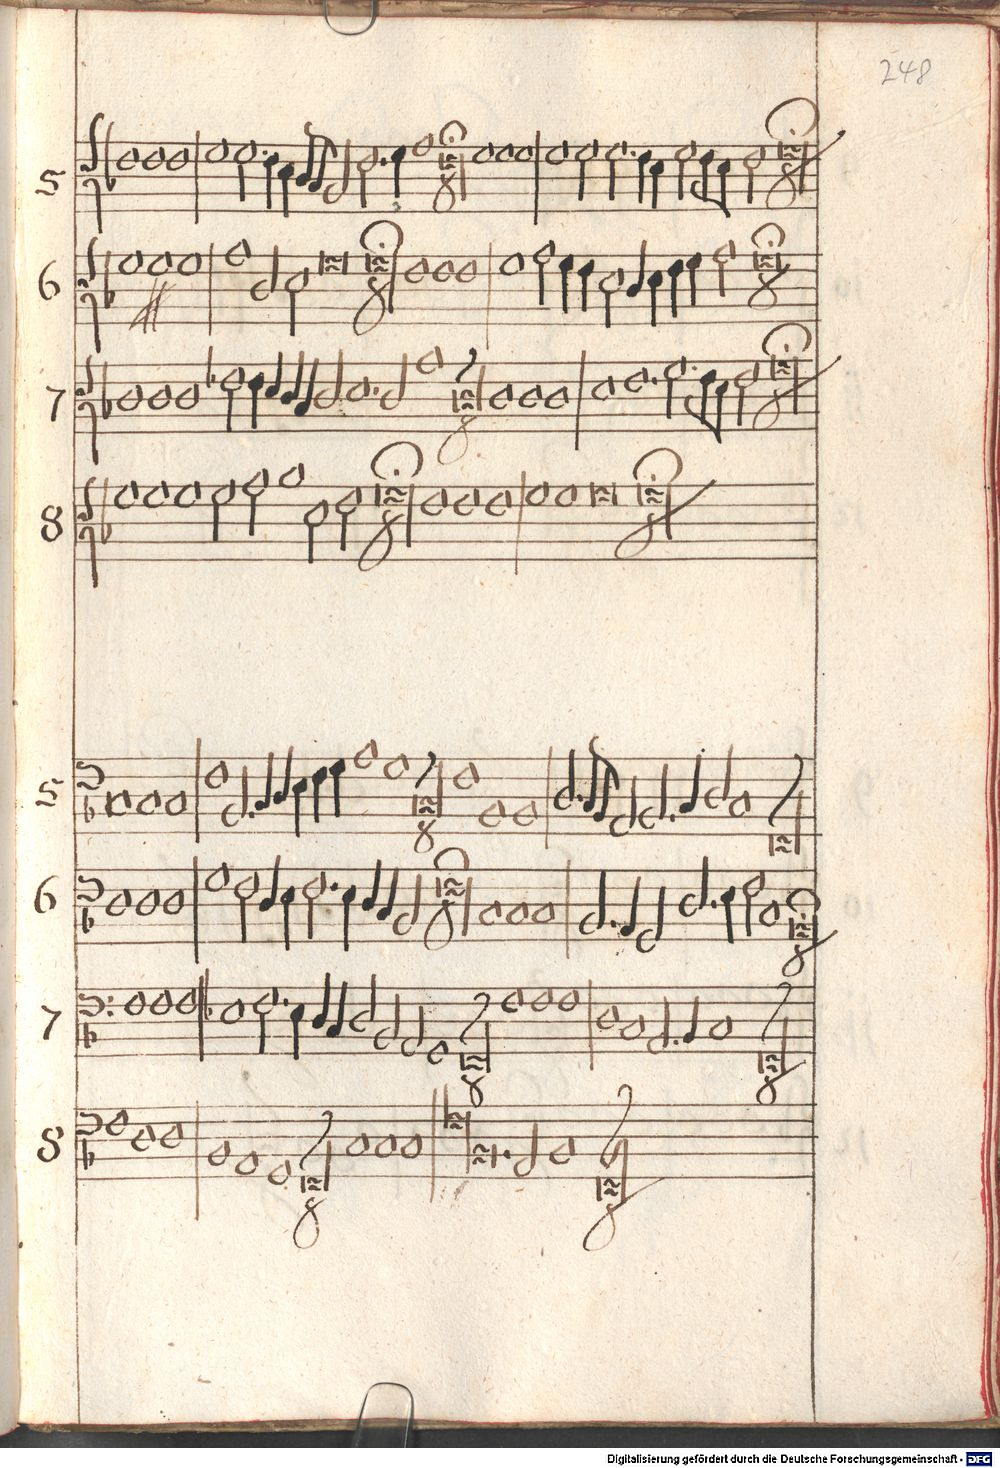 248
5
6
7
8
5
6
7
8
Digitalisierung gefördert durch die Deutsche Forschungsgemeinschaft - DFG